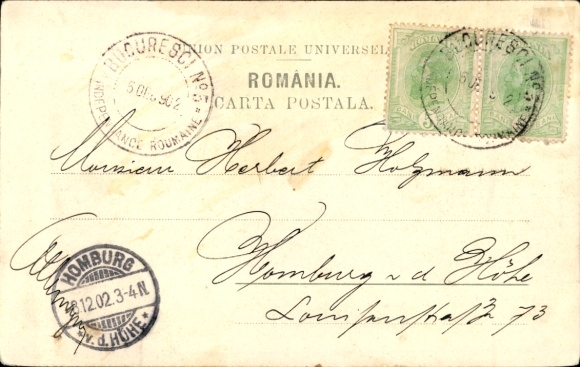 UNION POSTALE UNIVERSEL
ROMÂNIA.
CARTA POSTALA.
BUCURESCI No 5
5 DEC 902
INDEPENDANCE ROUMAINE
BUCURESCI No 5
Monsieur Herbert Holzmann
Homburg v d Höhe
Louisenstraße 73
HOMBURG
8.12.02.3-4N.
v.d. HÖHE